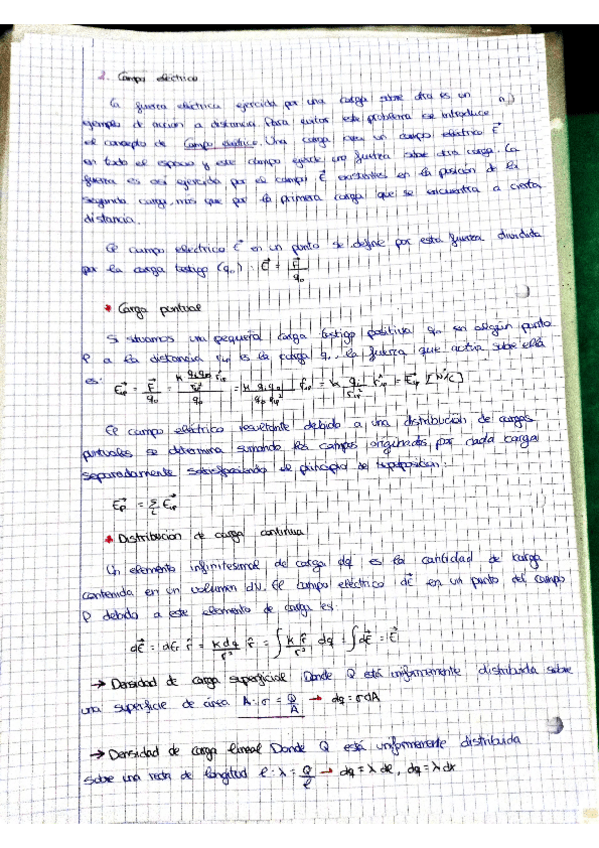 2. Campo eléctrico
La fuerza eléctrica ejercida por una carga sobre otra es un
ejemplo de acción a distancia. Para evitar este problema se introduce
el concepto de Campo eléctrico. Una carga crea un campo eléctrico E⃗
en todo el espacio y este campo ejerce una fuerza sobre otra carga. La
fuerza es así ejercida por el campo E⃗ existentes en la posición de la
segunda carga, más que por la primera carga que se encuentra a cierta
distancia.
El campo eléctrico E⃗ en un punto se define por esta fuerza dividida
por la carga testigo (q₀): E⃗ = F⃗/q₀
* Carga puntual
Si situamos una pequeña carga testigo positiva q₀ en algún punto
P a la distancia rᵢₚ de la carga qᵢ, la fuerza que actúa sobre ella
es: E⃗ᵢₚ = F⃗/q₀ = = = k qᵢ/rᵢₚ² r̂ᵢₚ = E⃗ᵢₚ [N/C]
El campo eléctrico resultante debido a una distribución de cargas
puntuales se determina sumando los campos originados por cada carga
separadamente satisfaciendo el principio de superposición:
E⃗ₚ = Σᵢ E⃗ᵢₚ
* Distribución de carga continua
Un elemento infinitesimal de carga dq es la cantidad de carga
contenida en un volumen dV. El campo eléctrico dE⃗ en un punto del campo
P debido a este elemento de carga es:
dE⃗ = dEr r̂ = k dq/r² r̂ = ∫ k r̂/r² dq = ∫ dE⃗ = E⃗
→ Densidad de carga superficial Donde Q está uniformemente distribuida sobre
una superficie de área A: σ = Q/A → dq = σdA
→ Densidad de carga lineal Donde Q está uniformemente distribuida
sobre una recta de longitud ℓ: λ = Q/ℓ → dq = λ dℓ, dq = λ dx